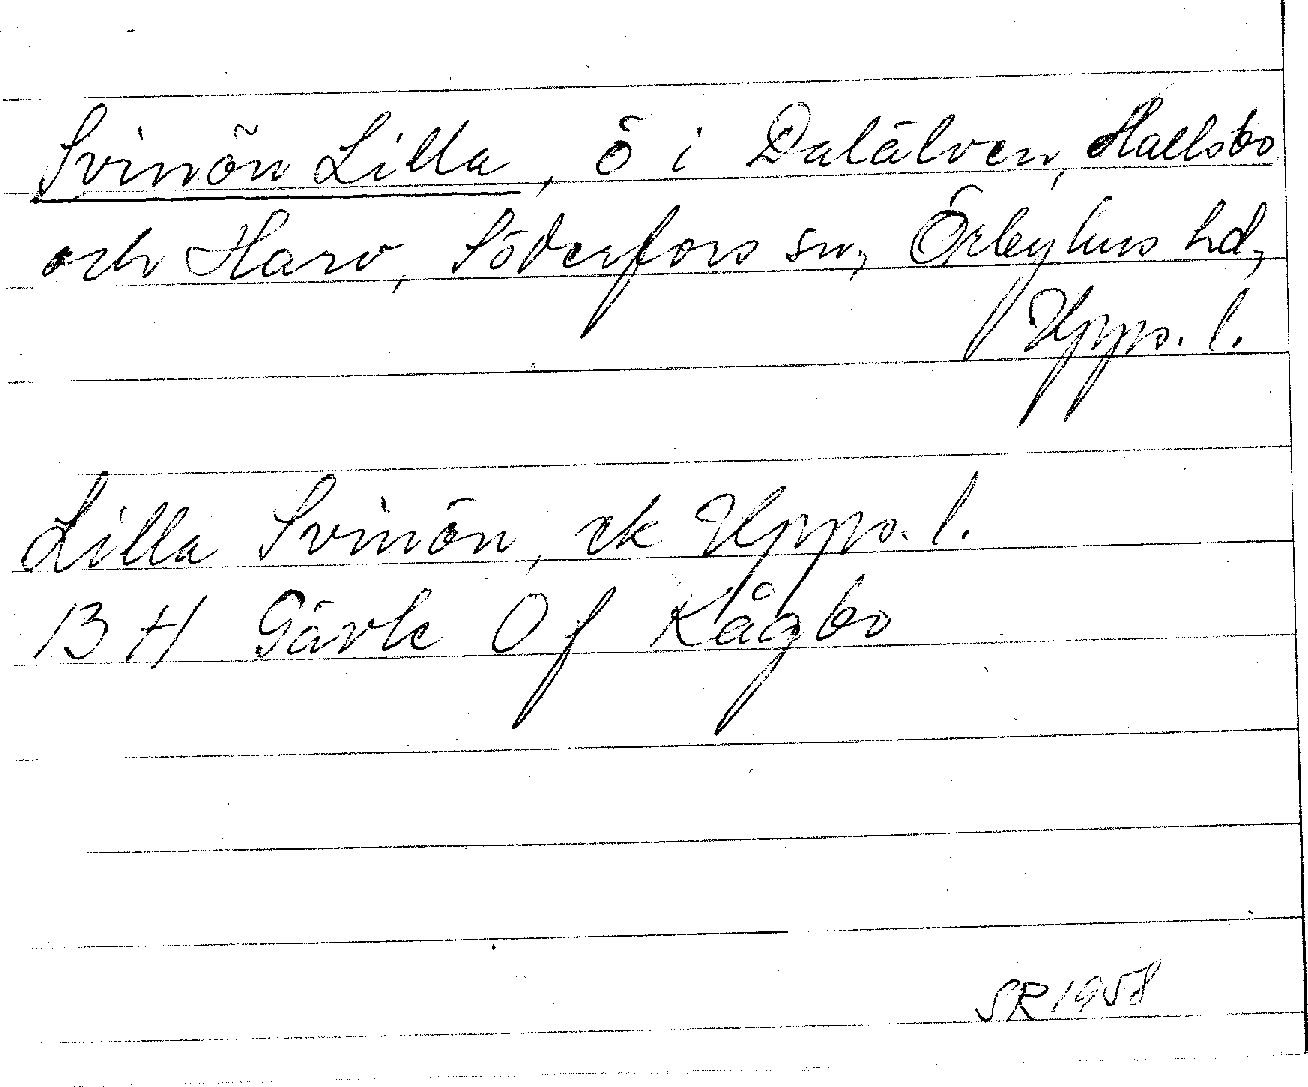 Svinön Lilla, ö i Dalälven, Hallsbo
och Harv, Söderfors sn, Örbyhus hd,
Upps. l.
Lilla Svinön, ek Upps. l.
13 H Gävle 0 f Kågbo
SR 1958